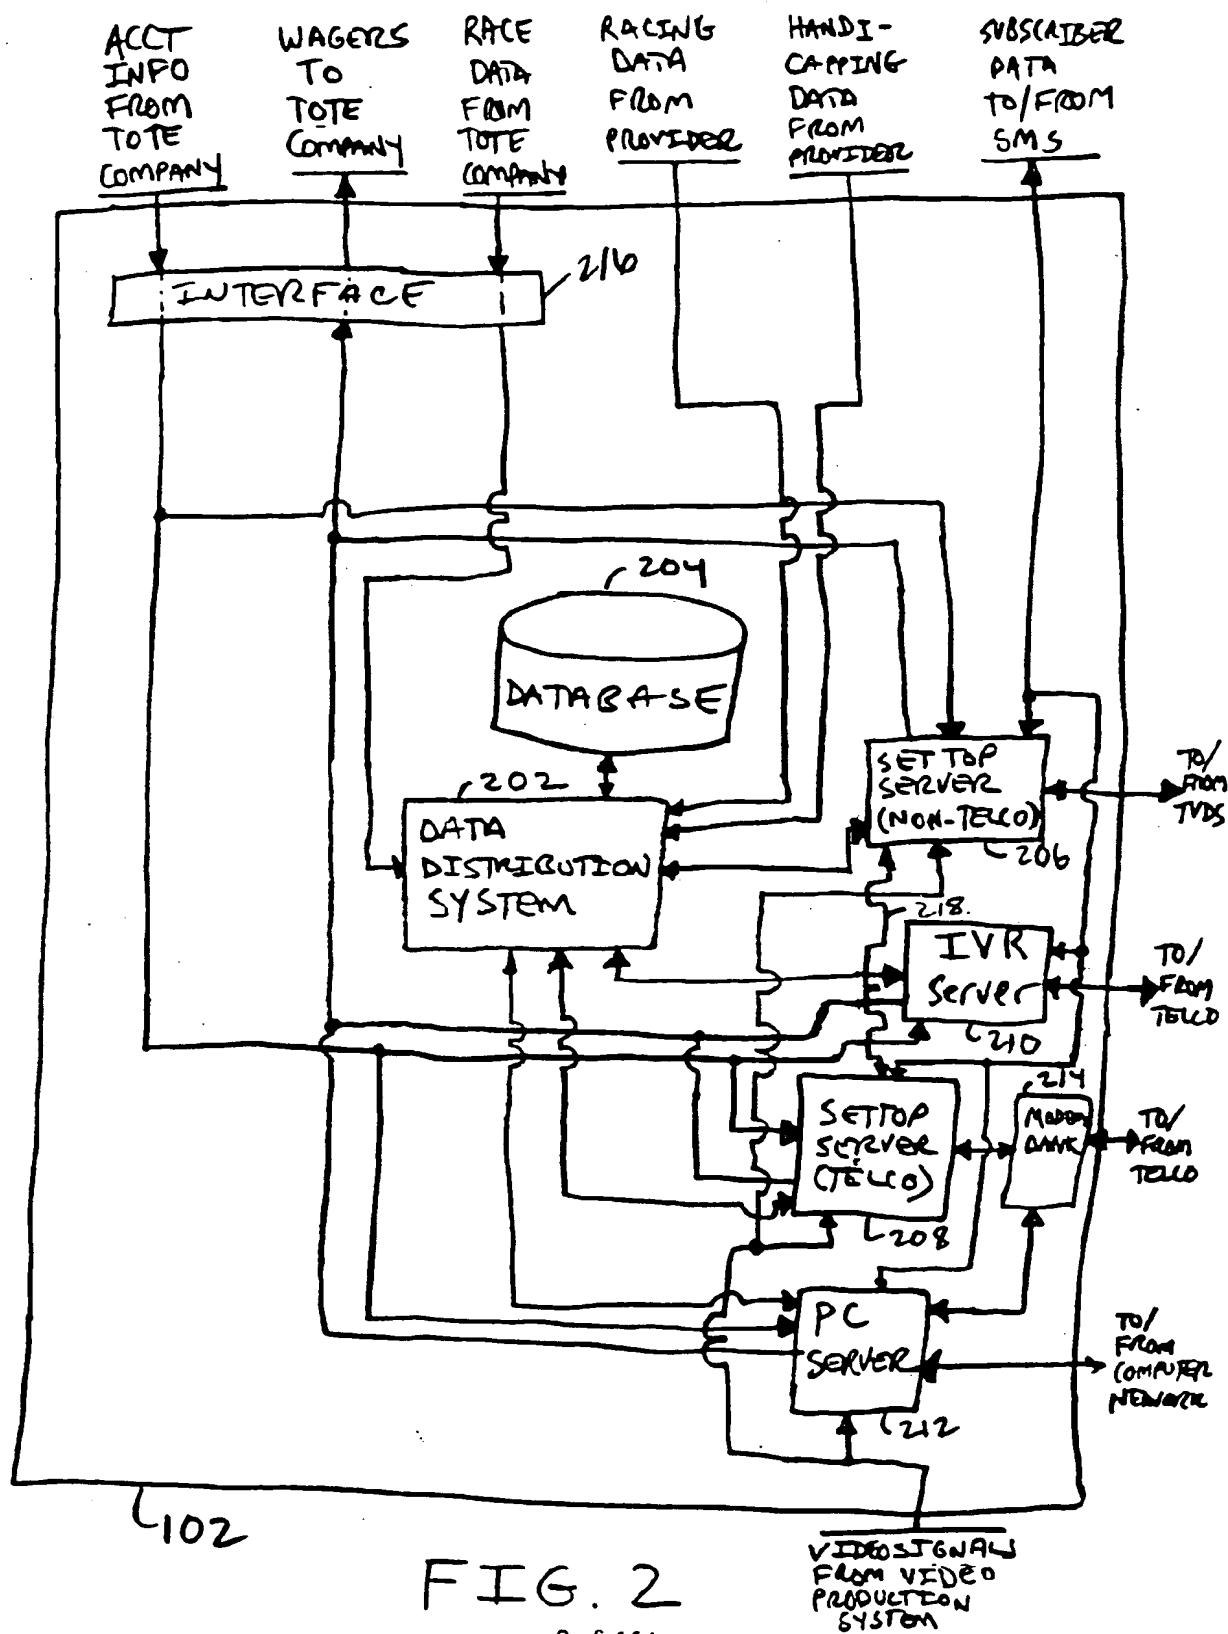 ACCT
INFO
FROM
TOTE
COMPANY
WAGERS
TO
TOTE
COMPANY
RACE
DATA
FROM
TOTE
COMPANY
RACING
DATA
FROM
PROVIDER
HANDI-
CAPPING
DATA
FROM
PROVIDER
SUBSCRIBER
DATA
TO/FROM
SMS
INTERFACE
216
204
DATABASE
202
DATA
DISTRIBUTION
SYSTEM
SET TOP
SERVER
(NON-TELCO)
206
TO/
FROM
TVDS
218
IVR
Server
210
TO/
FROM
TELCO
SETTOP
SERVER
(TELCO)
208
214
MODEM
BANK
TO/
FROM
TELCO
PC
SERVER
212
TO/
FROM
COMPUTER
NETWORK
102
VIDEO SIGNALS
FROM VIDEO
PRODUCTION
SYSTEM
FIG. 2